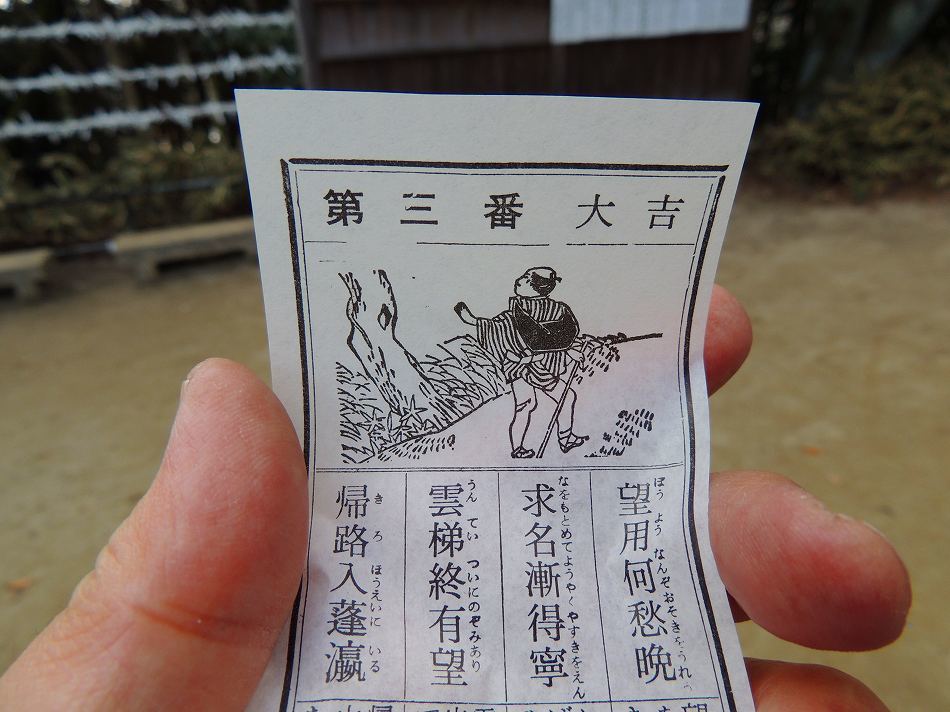 第三番 大吉
望用何愁晩
ぼうようなんぞおそきをうれ
求名漸得寧
なをもとめてようやくやすきをえん
雲梯終有望
うんていついにのぞみあり
帰路入蓬瀛
きろほうえいにいる